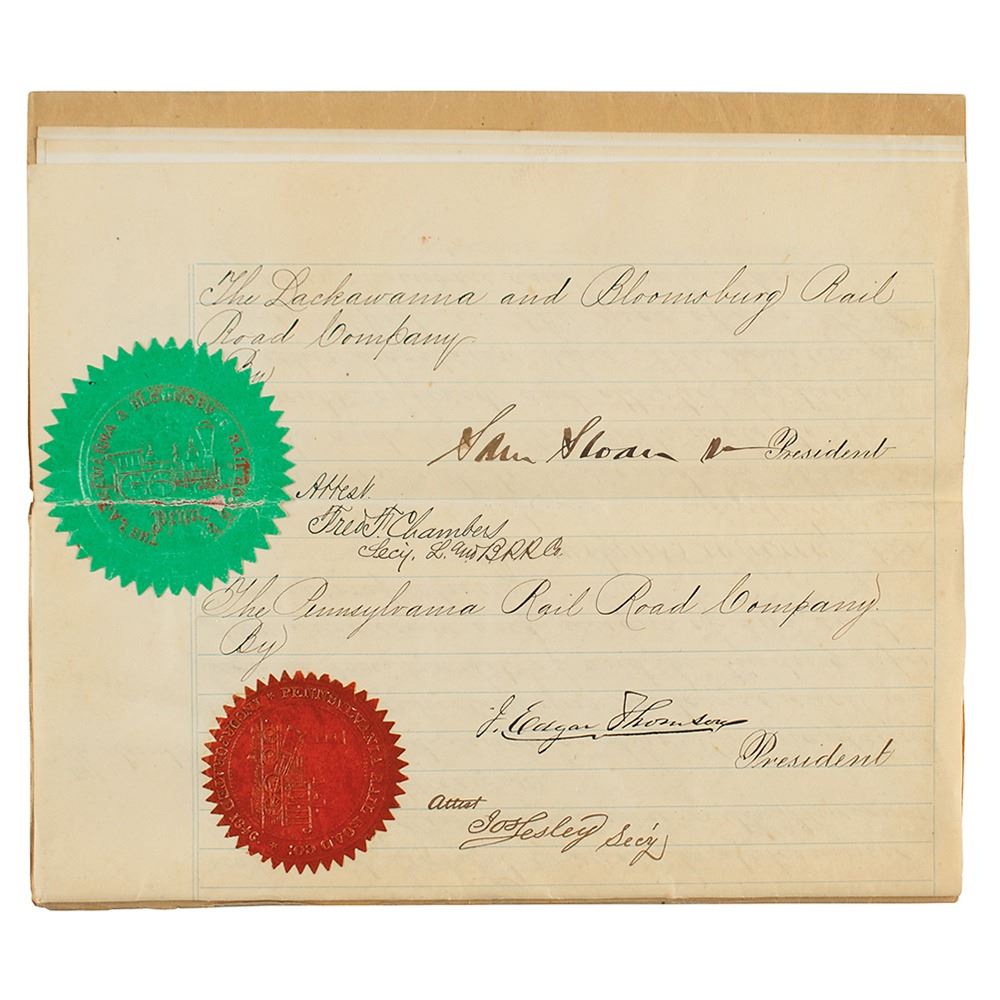 The Lackawanna and Bloomsburg Rail
Road Company
By
Sam Sloan President
Attest.
Fred F. Chambers
Secy. L. and B R R Co.
The Pennsylvania Rail Road Company
By
J. Edgar Thomson
President
Attest
Jos Lesley Secy
THE LACKAWANNA & BLOOMSBURG RAIL ROAD
PENNSYLVANIA RAIL ROAD CO:
1846